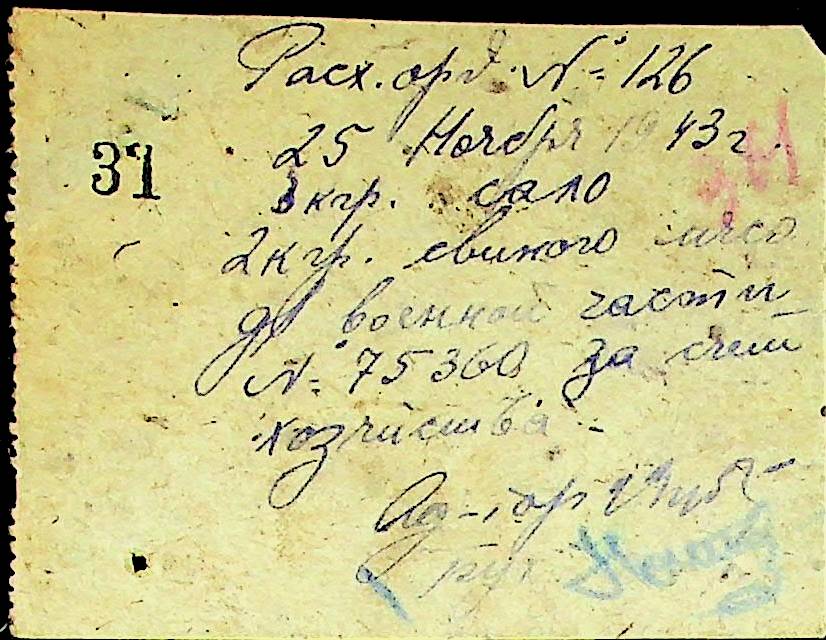 Расх. орд. № 126
25 Ноября 1943 г.
31
3 кгр. сало
2 кгр. свиного мясо
до военной части
№ 75360 за счет
хозяйства